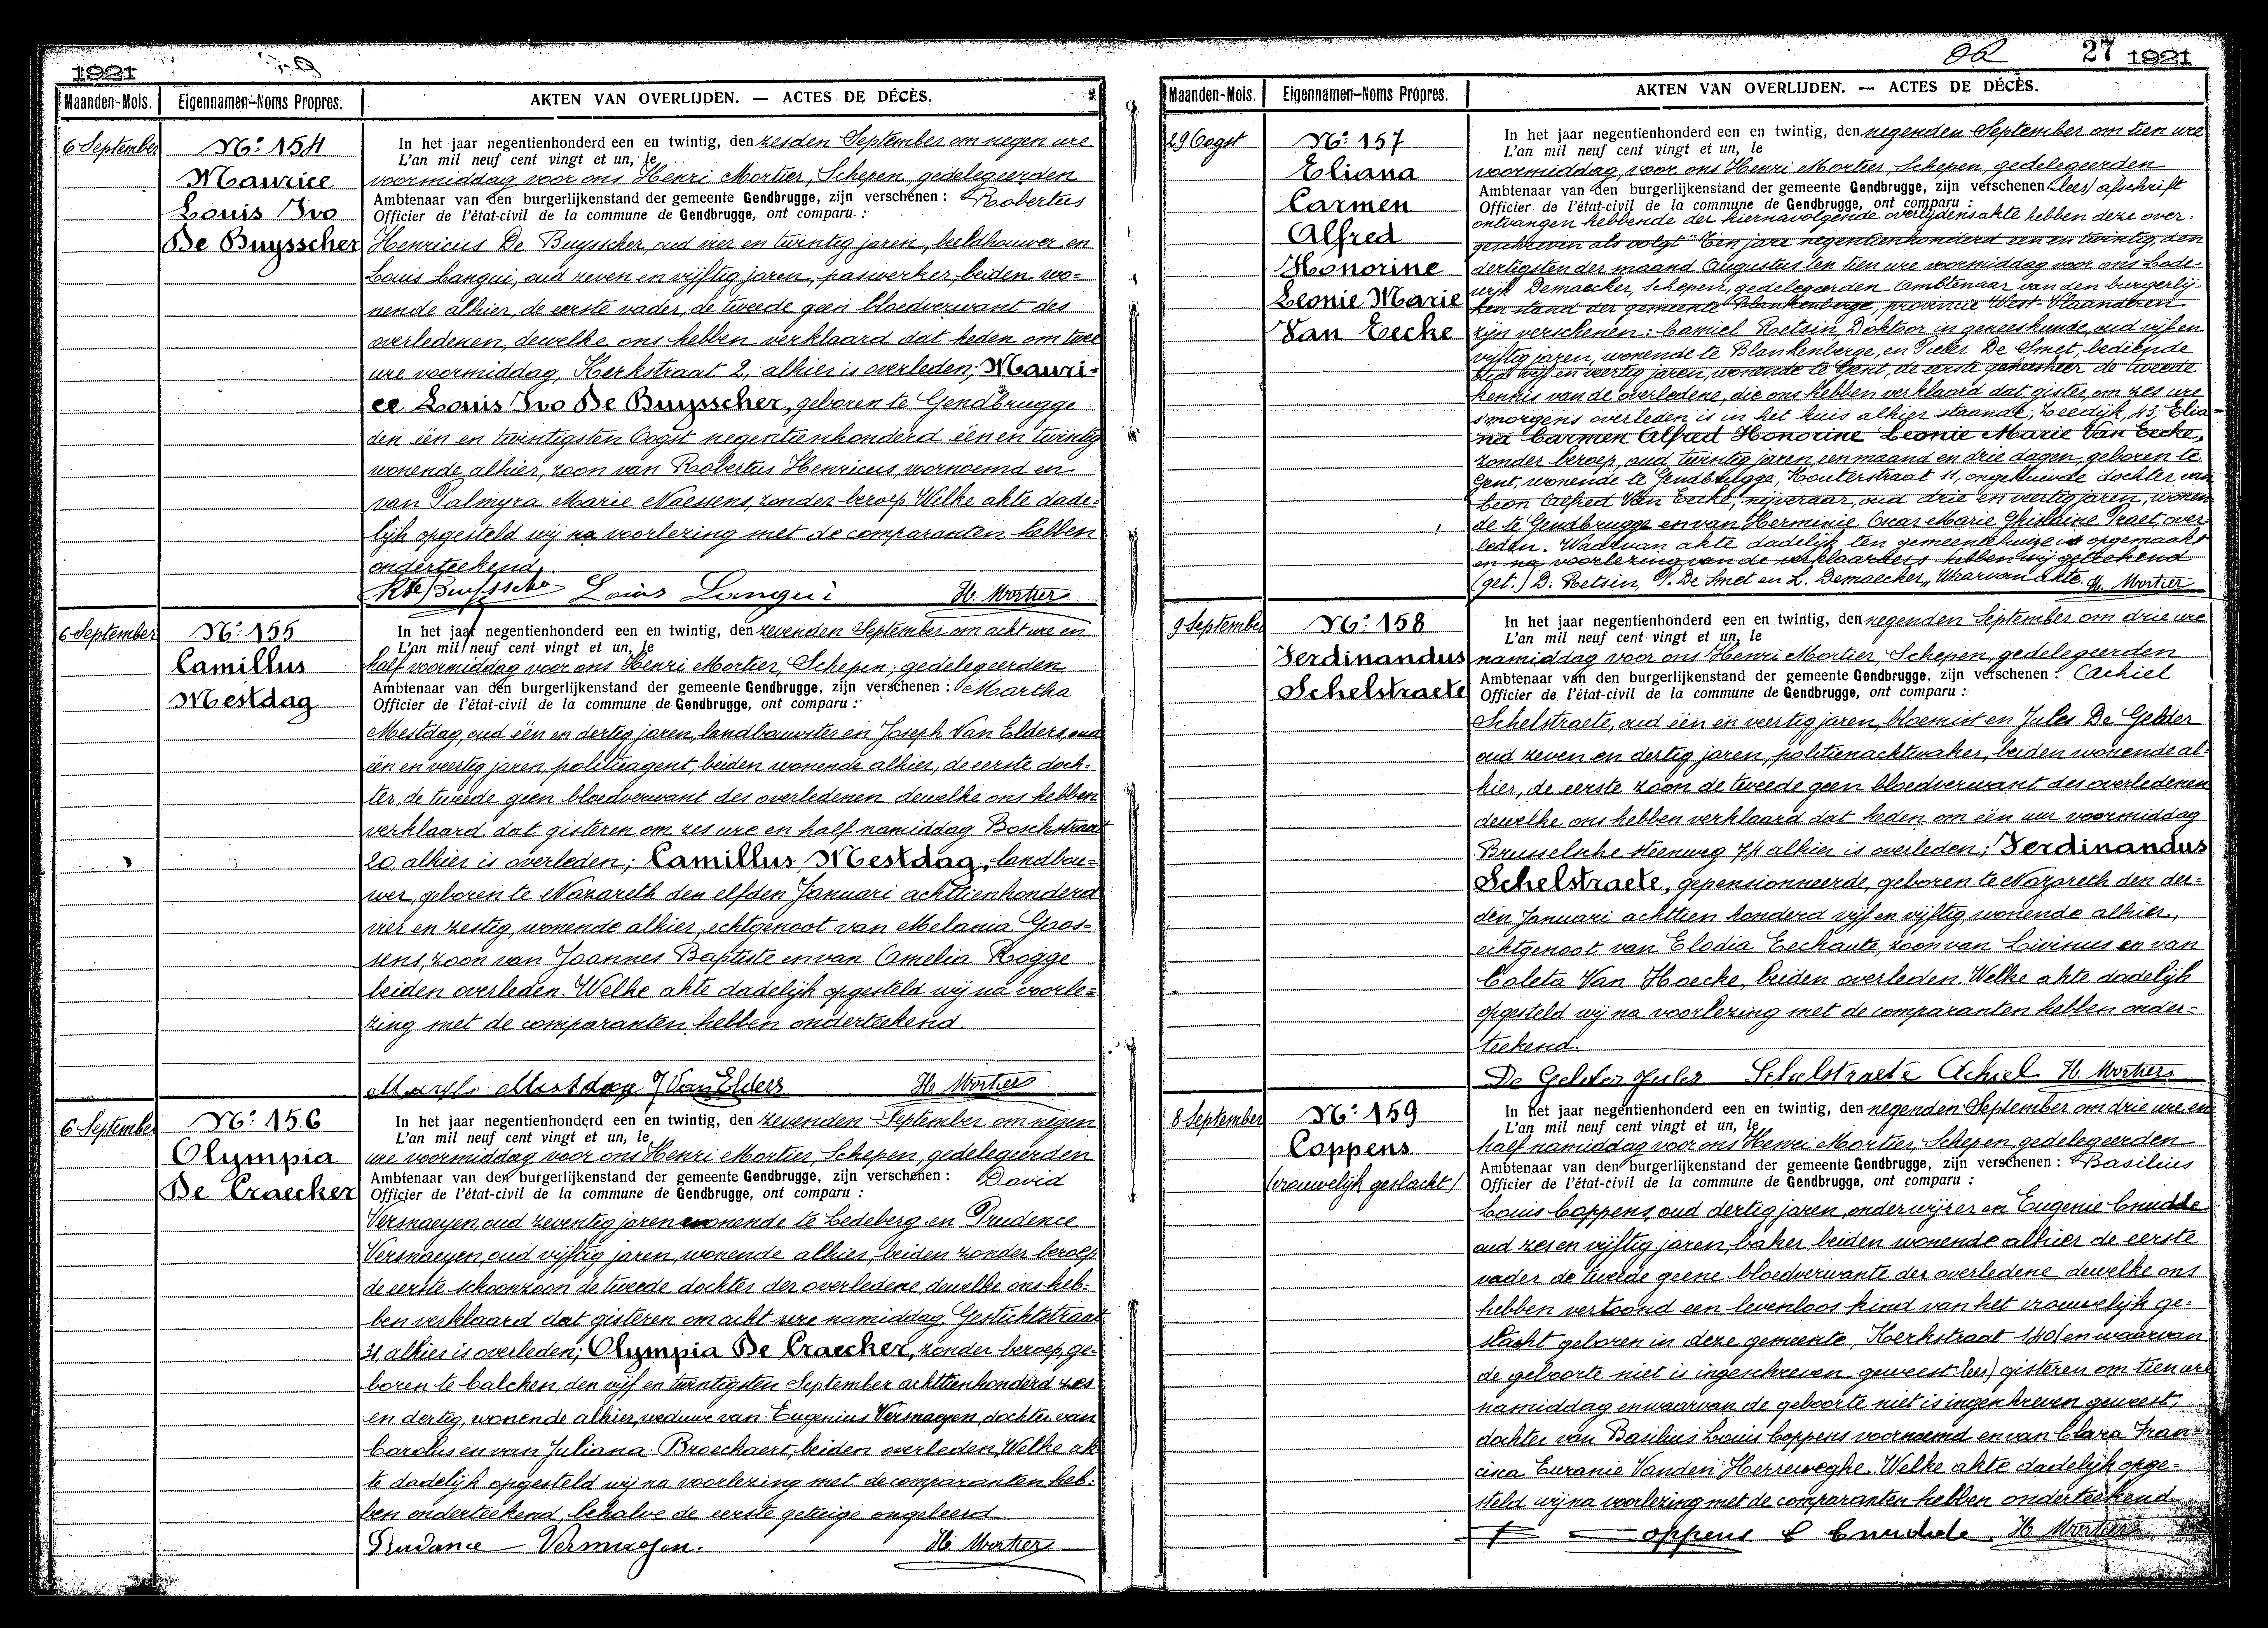 1921
Maanden-Mois. Eigennamen-Noms Propres. AKTEN VAN OVERLIJDEN. — ACTES DE DÉCÈS.
6 September
Nº 154
Maurice
Louis Ivo
De Buysscher
In het jaar negentienhonderd een en twintig, den zesden September om negen ure
L'an mil neuf cent vingt et un, le
voormiddag voor ons Henri Mortier, Schepen, gedelegeerden
Ambtenaar van den burgerlijkenstand der gemeente Gendbrugge, zijn verschenen : Robertus
Officier de l'état-civil de la commune de Gendbrugge, ont comparu :
Henricus De Buysscher, oud vier en twintig jaren, beeldhouwer en
Louis Langui, oud zeven en vijftig jaren, paswerker, beiden wo-
nende alhier, de eerste vader, de tweede geen bloedverwant des
overledenen, dewelke ons hebben verklaard dat heden om twee
ure voormiddag, Kerkstraat 2, alhier is overleden; Mauri-
ce Louis Ivo De Buysscher, geboren te Gendbrugge
den één en twintigsten Oogst negentienhonderd één en twintig
wonende alhier, zoon van Robertus Henricus, voornoemd en
van Palmyra Marie Naessens, zonder beroep. Welke akte dade-
lijk opgesteld wij na voorlezing met de comparanten hebben
onderteekend.
Rte Buysscher Louis Langui H. Mortier
6 September
Nº 155
Camillus
Mestdag
In het jaar negentienhonderd een en twintig, den zevenden September om acht ure en
L'an mil neuf cent vingt et un, le
half voormiddag voor ons Henri Mortier, Schepen, gedelegeerden
Ambtenaar van den burgerlijkenstand der gemeente Gendbrugge, zijn verschenen : Martha
Officier de l'état-civil de la commune de Gendbrugge, ont comparu :
Mestdag, oud één en dertig jaren, landbouwster en Joseph Van Elders, oud
één en veertig jaren, politieagent, beiden wonende alhier, de eerste doch-
ter, de tweede geen bloedverwant des overledenen dewelke ons hebben
verklaard dat gisteren om zes ure en half namiddag Boschstraat
20, alhier is overleden; Camillus Mestdag, landbou-
wer, geboren te Nazareth den elfden Januari achttienhonderd
vier en zestig, wonende alhier, echtgenoot van Melania Goos-
sens, zoon van Joannes Baptiste en van Amelia Rogge
beiden overleden. Welke akte dadelijk opgesteld wij na voorle-
zing met de comparanten hebben onderteekend.
Mestdag J Van Elders H. Mortier
6 September
Nº 156
Olympia
De Craecker
In het jaar negentienhonderd een en twintig, den zevenden September om negen
L'an mil neuf cent vingt et un, le
ure voormiddag voor ons Henri Mortier, Schepen, gedelegeerden
Ambtenaar van den burgerlijkenstand der gemeente Gendbrugge, zijn verschenen : David
Officier de l'état-civil de la commune de Gendbrugge, ont comparu :
Versnaeyen, oud zeventig jaren wonende te Ledeberg en Prudence
Versnaeyen, oud vijftig jaren, wonende alhier, beiden zonder beroep
de eerste schoonzoon de tweede dochter der overledene, dewelke ons heb-
ben verklaard dat gisteren om acht ure namiddag, Gestichtstraat
31, alhier is overleden; Olympia De Craecker, zonder beroep, ge-
boren te Calcken, den vijf en twintigsten September achttienhonderd zes
en dertig, wonende alhier, weduwe van Eugenius Versnaeyen, dochter van
Carolus en van Juliana Broeckaert, beiden overleden. Welke ak-
te dadelijk opgesteld wij na voorlezing met de comparanten heb-
ben onderteekend, behalve de eerste getuige ongeleerd.
Prudance Vermaesen. H. Mortier
27 1921
Maanden-Mois. Eigennamen-Noms Propres. AKTEN VAN OVERLIJDEN. — ACTES DE DÉCÈS.
29 Oogst
Nº 157
Eliana
Carmen
Alfred
Honorine
Leonie Marie
Van Eecke
In het jaar negentienhonderd een en twintig, den negenden September om tien ure
L'an mil neuf cent vingt et un, le
voormiddag, voor ons Henri Mortier, Schepen, gedelegeerden
Ambtenaar van den burgerlijkenstand der gemeente Gendbrugge, zijn verschenen (lees) afschrift
Officier de l'état-civil de la commune de Gendbrugge, ont comparu :
ontvangen hebbende der hiernavolgende overlijdensakte hebben deze over-
geschreven als volgt "Een jare negentienhonderd een en twintig, den
dertigsten der maand Augustus ten tien ure voormiddag voor ons Lode-
wijk Demaecker, Schepen, gedelegeerden Ambtenaar van den burgerlij-
ken stand der gemeente Blankenberge, provincie West-Vlaanderen
zijn verschenen: Camiel Retsin, Doktoor in geneeskunde, oud vijf en
vijftig jaren, wonende te Blankenberge, en Pieter De Smet, bediende
oud vijf en veertig jaren, wonende te Gent, de eerste geneesheer de tweede
kennis van de overledene, die ons hebben verklaard dat gister om zes ure
s'morgens overleden is in het huis alhier staande, Zeedijk, 43, Elia-
na Carmen Alfred Honorine Leonie Marie Van Eecke,
zonder beroep, oud twintig jaren, een maand en drie dagen, geboren te
Gent, wonende te Gendbrugge, Houterstraat 11, ongehuwde dochter van
Leon Alfred Van Eecke, nijveraar, oud drie en veertig jaren, wonen-
de te Gendbrugge en van Herminie Oscar Marie Ghislaine Praet, over-
leden. Waarvan akte dadelijk ten gemeentehuize is opgemaakt
en na voorlezing van de verklaarders hebben wij geteekend
(get.) D. Retsin, P. De Smet en L. Demaecker,, Waarvan Akte. H. Mortier
9 September
Nº 158
Ferdinandus
Schelstraete
In het jaar negentienhonderd een en twintig, den negenden September om drie ure
L'an mil neuf cent vingt et un, le
namiddag voor ons Henri Mortier, Schepen, gedelegeerden
Ambtenaar van den burgerlijkenstand der gemeente Gendbrugge, zijn verschenen : Achiel
Officier de l'état-civil de la commune de Gendbrugge, ont comparu :
Schelstraete, oud één en veertig jaren, bloemist en Jules De Gelder
oud zeven en dertig jaren, politienachtwaker, beiden wonende al-
hier, de eerste zoon de tweede geen bloedverwant des overledenen
dewelke ons hebben verklaard dat heden om één uur voormiddag
Brusselsche steenweg 74 alhier is overleden; Ferdinandus
Schelstraete, gepensionneerde, geboren te Nazareth den der-
den Januari achttien honderd vijf en vijftig, wonende alhier,
echtgenoot van Elodia Eechaute, zoon van Livinus en van
Coleta Van Hoecke, beiden overleden. Welke akte dadelijk
opgesteld wij na voorlezing met de comparanten hebben onder-
teekend.
De Gelder Jules Schelstraete Achiel H. Mortier
8 September
Nº 159
Coppens
(vrouwelijk geslacht)
In het jaar negentienhonderd een en twintig, den negenden September om drie ure en
L'an mil neuf cent vingt et un, le
half namiddag voor ons Henri Mortier, Schepen, gedelegeerden
Ambtenaar van den burgerlijkenstand der gemeente Gendbrugge, zijn verschenen : Basilius
Officier de l'état-civil de la commune de Gendbrugge, ont comparu :
Louis Coppens, oud dertig jaren, onderwijzer en Eugenie Cnudde
oud zes en vijftig jaren, baker, beiden wonende alhier de eerste
vader de tweede geene bloedverwante der overledene, dewelke ons
hebben vertoond een levenloos kind van het vrouwelijk ge-
slacht geboren in deze gemeente, Kerkstraat 140 (en waarvan
de geboorte niet is ingeschreven geweest: lees) gisteren om tien ure
namiddag en waarvan de geboorte niet is ingeschreven geweest,
dochter van Basilius Louis Coppens voornoemd en van Clara Fran-
cisca Euranie Vanden Herreweghe. Welke akte dadelijk opge-
steld wij na voorlezing met de comparanten hebben onderteekend.
oppens C Cnudde H. Mortier